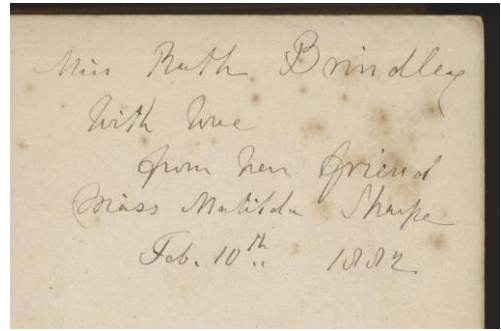 Miss Ruth Brindley
With love
from her friend
Miss Matilda Sharpe
Feb. 10th. 1882